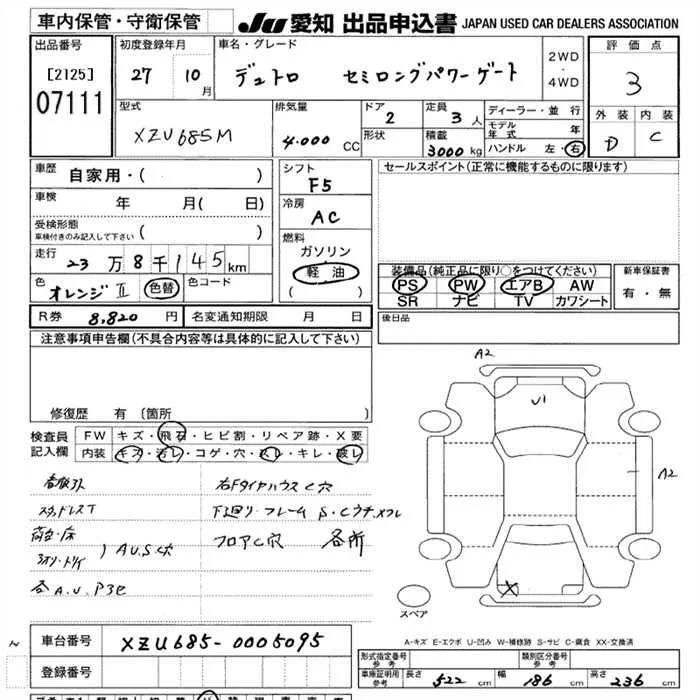 車内保管・守衛保管
JU 愛知 出品申込書 JAPAN USED CAR DEALERS ASSOCIATION
出品番号
[2125]
07111
初度登録年月
27 10月
車名・グレード
デュトロ セミロングパワーゲート
2WD・4WD
評価点
3
外装 内装
D C
型式
XZU685M
排気量
4.000 CC
ドア
2
定員
3人
形状
積載
3000 kg
ディーラー・並行
モデル年式 年
ハンドル 左・右
車歴 自家用・( )
車検 年 月( 日)
受検形態
車検付きのみ記入して下さい ( )
走行
23万8千145km
色
オレンジII 色替
色コード
シフト
F5
冷房
AC
燃料
ガソリン
軽油
( )
セールスポイント(正常に機能するものに限ります)
装備品(純正品に限り○をつけてください)
PS PW エアB AW
SR ナビ TV カワシート
新車保証書
有・無
R券 8,820円 名変通知期限 月 日
後日品
注意事項申告欄(不具合内容等は具体的に記入して下さい)
修復歴 有 〔箇所 〕
検査員記入欄
FW キズ・飛石・ヒビ割・リペア跡・X要
内装 キズ・汚レ・コゲ・穴・スレ・キレ・破レ
スタッドレスT
右Fタイヤハウス C穴
フロアC穴 各所
A2
U1
A2
X
スペア
A-キズ E-エクボ U-凹み W-補修跡 S-サビ C-腐食 XX-交換済
車台番号 XZU685-0005095
登録番号
形式指定番号 参考
類別区分番号 参考
車庫証明用 参考 長さ 522 cm 幅 186 cm 高さ 236 cm